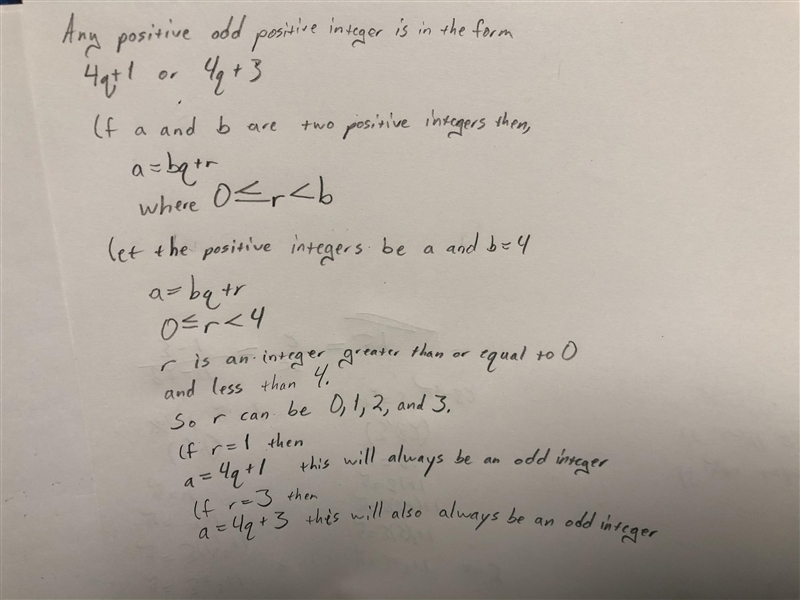 Any positive odd positive integer is in the form
4q+1 or 4q+3
If a and b are two positive integers then,
a=bq+r
where 0≤r<b
let the positive integers be a and b=4
a=bq+r
0≤r<4
r is an integer greater than or equal to 0
and less than 4.
So r can be 0,1,2, and 3.
If r=1 then
a=4q+1 this will always be an odd integer
If r=3 then
a=4q+3 this will also always be an odd integer